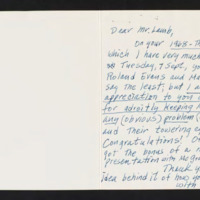 Dear Mr. Lamb,
On your 1968-Th
which I have very much
Tuesday, 9 Sept, you
Roland Evans and Ma
say the least, but I a
appreciation to you
for adroitly keeping
any (obvious) problem
and their towering eg
Congratulations! O
got the bonus of a
presentation with the gra
Thank y
idea behind it of
with